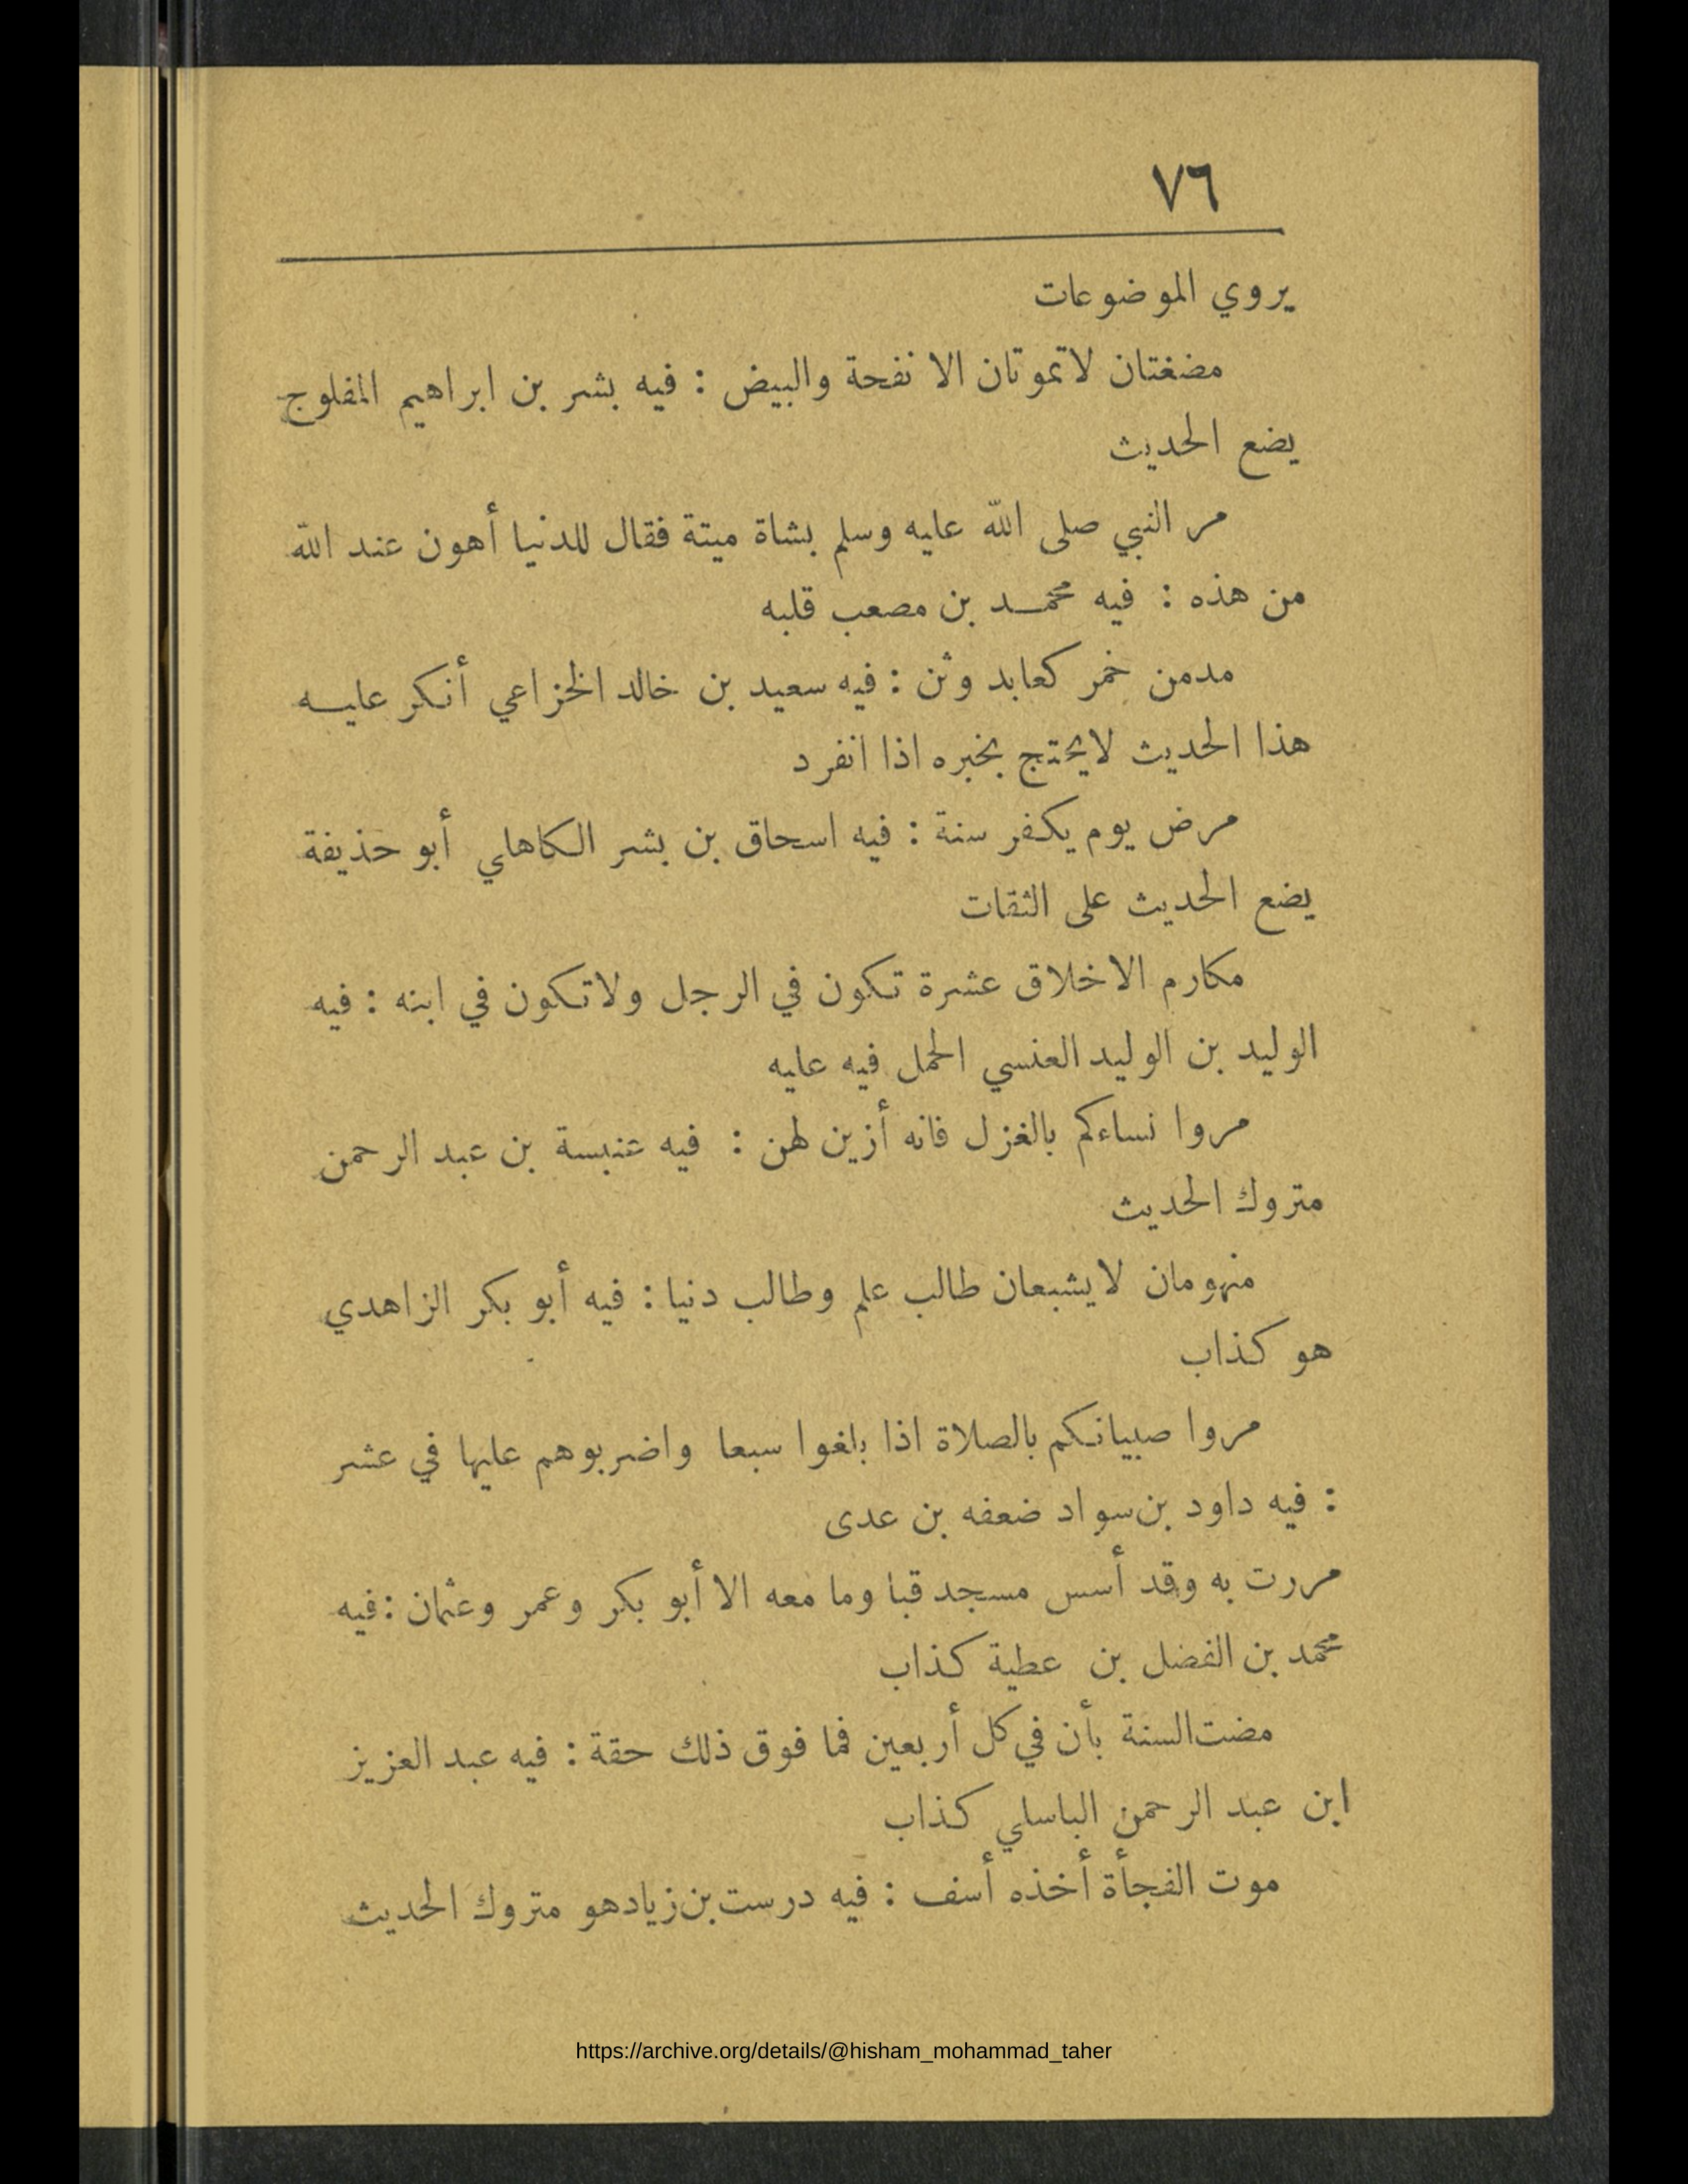 ٧٦
يروي الموضوعات
مضغتان لاتموتان الانفحة والبيض : فيه بشر بن ابراهيم المفلوج
يضع الحديث
مر النبي صلى الله عليه وسلم بشاة ميتة فقال للدنيا أهون عند الله
من هذه : فيه محمد بن مصعب قلبه
مدمن خمر كعابد وثن : فيه سعيد بن خالد الخزاعي أنكر عليه
هذا الحديث لايحتج بخبره اذا انفرد
مرض يوم يكفر سنة : فيه اسحاق بن بشر الكاهلي أبو حذيفة
يضع الحديث على الثقات
مكارم الاخلاق عشرة تكون في الرجل ولاتكون في ابنه : فيه
الوليد بن الوليد العنسي الحمل فيه عليه
مروا نساءكم بالغزل فانه أزين لهن : فيه عنبسة بن عبد الرحمن
متروك الحديث
منهومان لايشبعان طالب علم وطالب دنيا : فيه أبو بكر الزاهدي
هو كذاب
مروا صبيانكم بالصلاة اذا بلغوا سبعا واضربوهم عليها في عشر
: فيه داود بن سواد ضعفه بن عدى
مررت به وقد أسس مسجد قبا وما معه الا أبو بكر وعمر وعثمان : فيه
محمد بن الفضل بن عطية كذاب
مضت السنة بأن في كل أربعين فما فوق ذلك حقة : فيه عبد العزيز
ابن عبد الرحمن الباسلي كذاب
موت الفجأة أخذه أسف : فيه درست بن زياد هو متروك الحديث
https://archive.org/details/@hisham_mohammad_taher